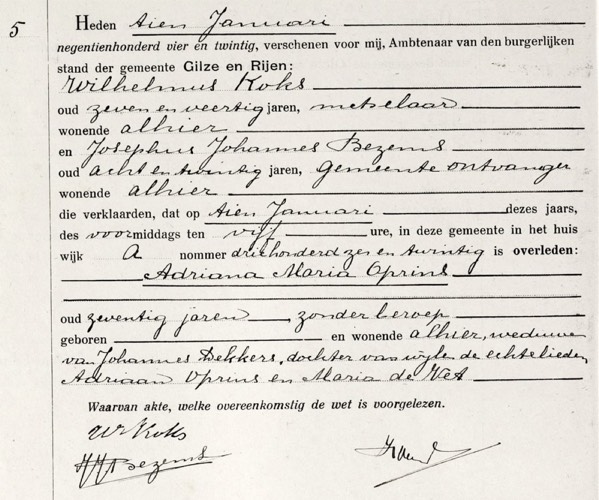 5
Heden tien Januari
negentienhonderd vier en twintig, verschenen voor mij, Ambtenaar van den burgerlijken
stand der gemeente Gilze en Rijen:
Wilhelmus Koks
oud zeven en veertig jaren, metselaar
wonende alhier
en Josephus Johannes Bezems
oud acht en twintig jaren, gemeente ontvanger
wonende alhier
die verklaarden, dat op tien Januari dezes jaars,
des voormiddags ten vijf ure, in deze gemeente in het huis
wijk A nommer driehonderd zes en twintig is overleden:
Adriana Maria Oprins
oud zeventig jaren, zonder beroep
geboren en wonende alhier, weduwe
van Johannes Dekkers, dochter van wijle de echtelieden
Adriaan Oprins en Maria de Vet
Waarvan akte, welke overeenkomstig de wet is voorgelezen.
W Koks
JJ Bezems